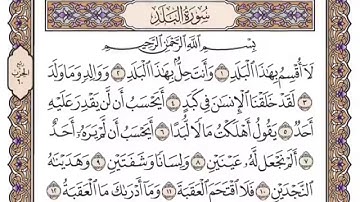 سُورَةُ البَلَدِ
بِسْمِ ٱللَّهِ ٱلرَّحْمَٰنِ ٱلرَّحِيمِ
لَآ أُقْسِمُ بِهَٰذَا ٱلْبَلَدِ ١ وَأَنتَ حِلٌّۢ بِهَٰذَا ٱلْبَلَدِ ٢ وَوَالِدٍ وَمَا وَلَدَ
٣ لَقَدْ خَلَقْنَا ٱلْإِنسَٰنَ فِي كَبَدٍ ٤ أَيَحْسَبُ أَن لَّن يَقْدِرَ عَلَيْهِ
أَحَدٌ ٥ يَقُولُ أَهْلَكْتُ مَالًا لُّبَدًا ٦ أَيَحْسَبُ أَن لَّمْ يَرَهُۥٓ أَحَدٌ
٧ أَلَمْ نَجْعَل لَّهُۥ عَيْنَيْنِ ٨ وَلِسَانًا وَشَفَتَيْنِ ٩ وَهَدَيْنَٰهُ
ٱلنَّجْدَيْنِ ١٠ فَلَا ٱقْتَحَمَ ٱلْعَقَبَةَ ١١ وَمَآ أَدْرَىٰكَ مَا ٱلْعَقَبَةُ ١٢